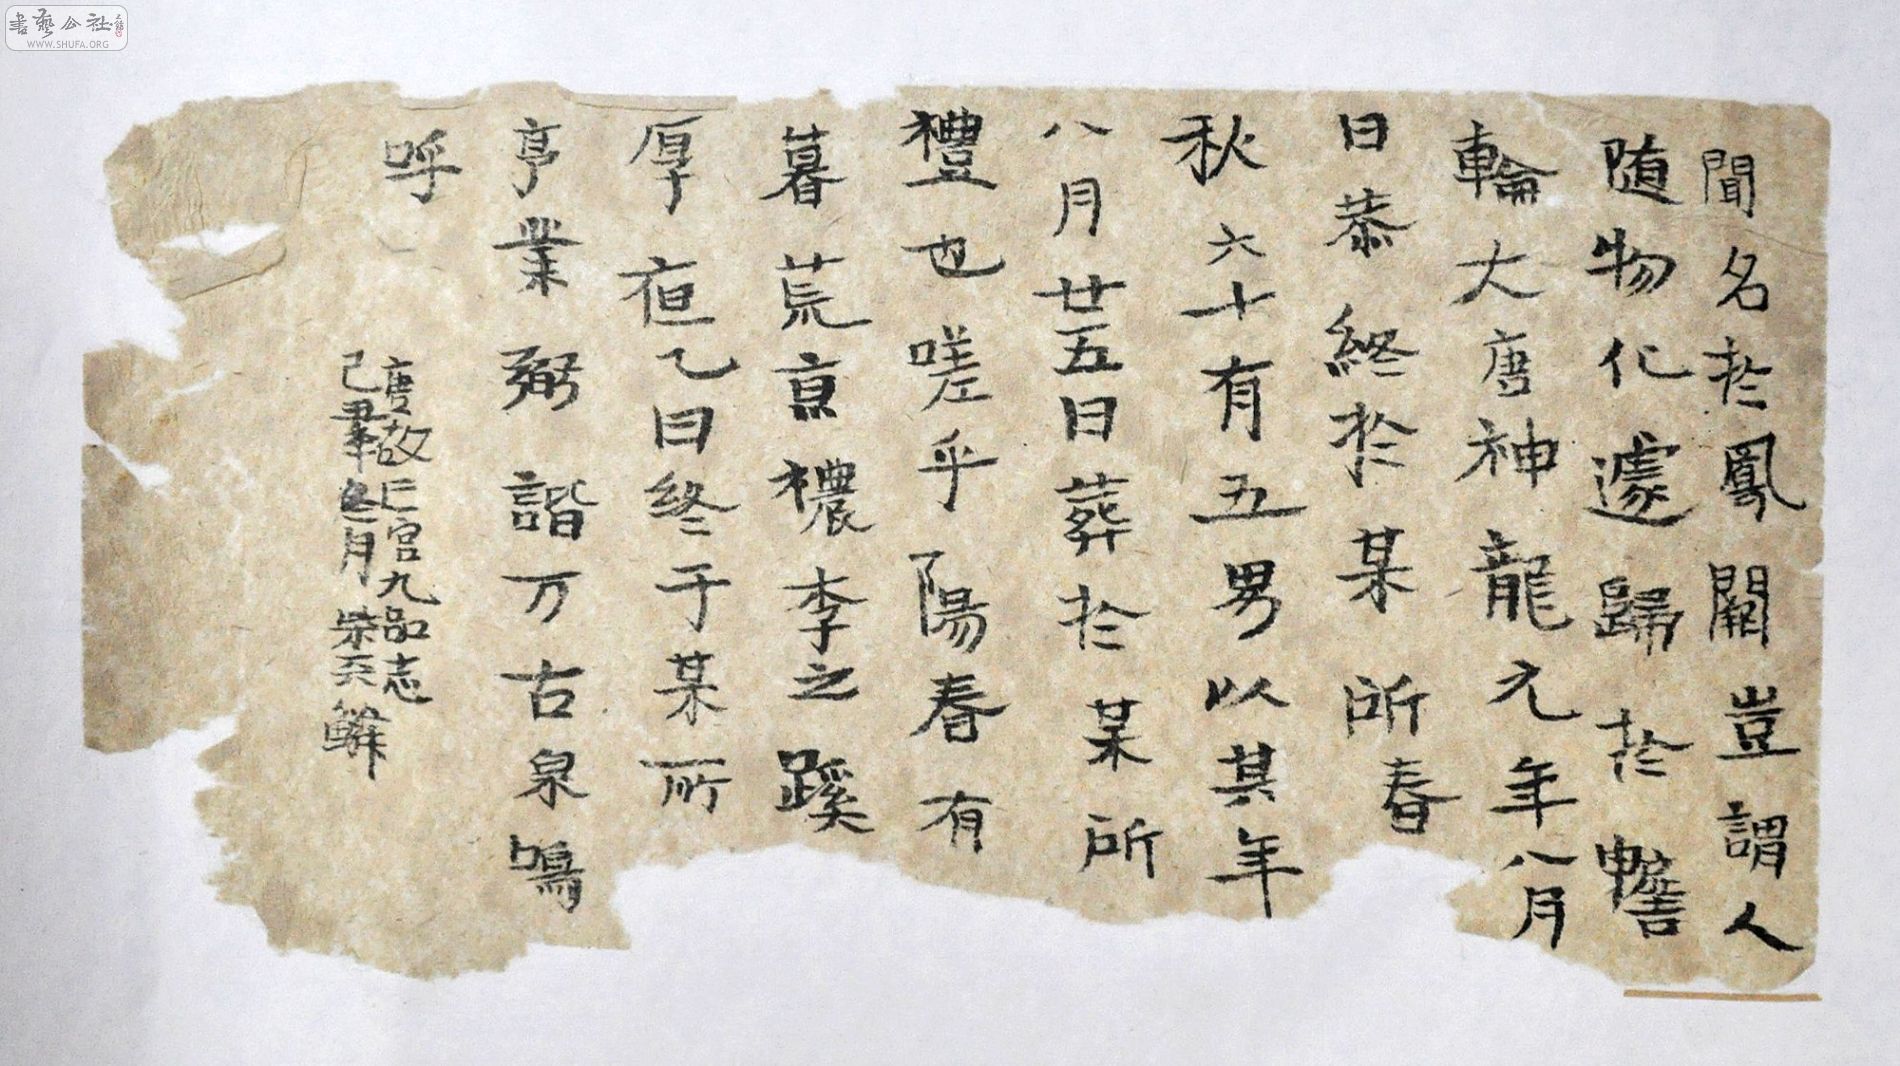 聞名於鳳闕豈謂人
随物化遽歸於蟾
輪大唐神龍元年八月
日恭終於某所春
秋六十有五男以其年
八月廿五日葬於某所
禮也嗟乎陽春有
暮荒亰穠李之蹊
厚夜乙日終于某所
亭業弼諧万古泉鳴
呼
唐故亡宮九品志
己羣月
書藝公社
WWW.SHUFA.ORG